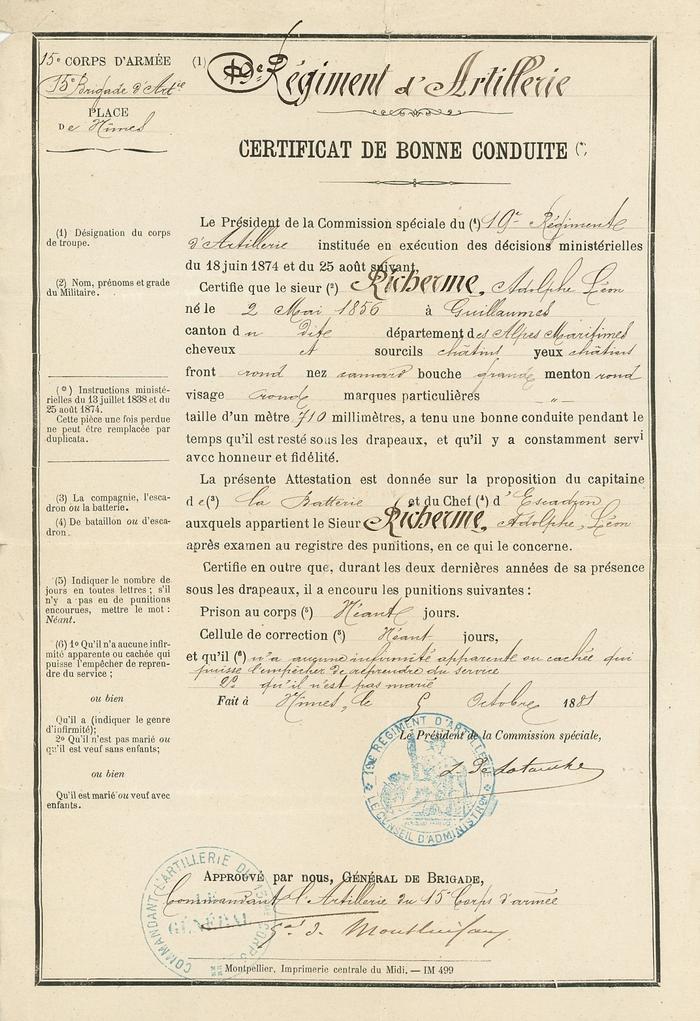 15e CORPS D'ARMÉE
15e Brigade d'Artie
PLACE
De Nîmes
(1) 19e Régiment d'Artillerie
CERTIFICAT DE BONNE CONDUITE (*)
(1) Désignation du corps
de troupe.
(2) Nom, prénoms et grade
du Militaire.
(*) Instructions ministé-
rielles du 13 juillet 1838 et du
25 août 1874.
Cette pièce une fois perdue
ne peut être remplacée par
duplicata.
(3) La compagnie, l'esca-
dron ou la batterie.
(4) De bataillon ou d'esca-
dron.
(5) Indiquer le nombre de
jours en toutes lettres ; s'il
n'y a pas eu de punitions
encourues, mettre le mot :
Néant.
(6) 1o Qu'il n'a aucune infir-
mité apparente ou cachée qui
puisse l'empêcher de repren-
dre du service ;
ou bien
Qu'il a (indiquer le genre
d'infirmité);
2o Qu'il n'est pas marié ou
qu'il est veuf sans enfants;
ou bien
Qu'il est marié ou veuf avec
enfants.
Le Président de la Commission spéciale du (1) 19e Régiment
d'Artillerie instituée en exécution des décisions ministérielles
du 18 juin 1874 et du 25 août suivant,
Certifie que le sieur (2) Richerme, Adolphe Léon
né le 2 Mai 1856 à Guillaumes
canton du dite département des Alpes Maritimes
cheveux et sourcils châtins yeux châtins
front rond nez camard bouche grande menton rond
visage rond marques particulières -"-
taille d'un mètre 710 millimètres, a tenu une bonne conduite pendant le
temps qu'il est resté sous les drapeaux, et qu'il y a constamment servi
avec honneur et fidélité.
La présente Attestation est donnée sur la proposition du capitaine
de (3) la Batterie et du Chef (4) d'Escadron
auxquels appartient le Sieur Richerme, Adolphe, Léon
après examen au registre des punitions, en ce qui le concerne.
Certifie en outre que, durant les deux dernières années de sa présence
sous les drapeaux, il a encouru les punitions suivantes :
Prison au corps (5) Néant jours.
Cellule de correction (5) Néant jours,
et qu'il (6) n'a aucune infirmité apparente ou cachée qui
puisse l'empêcher de reprendre du service
2o qu'il n'est pas marié
Fait à Nîmes, le 5 Octobre 1881
Le Président de la Commission spéciale,
19e RÉGIMENT D'ARTILLERIE
LE CONSEIL D'ADMINISTRON
APPROUVÉ par nous, GÉNÉRAL DE BRIGADE,
Commandant l'Artillerie du 15e Corps d'armée
COMMANDANT L'ARTILLERIE DU 15e CORPS
LE
GÉNÉRAL
Montpellier, Imprimerie centrale du Midi. — IM 499